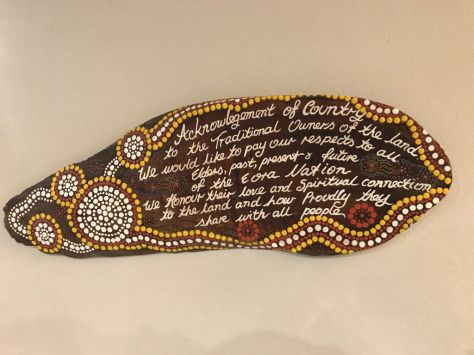 Acknowlegement of Country
to the Traditional Owners of the land
We would like to pay our respects to all
Elders, past, present & future
of the Eora Nation
We Honour their love and Spiritual connection
to the land and how Proudly they
share with all people